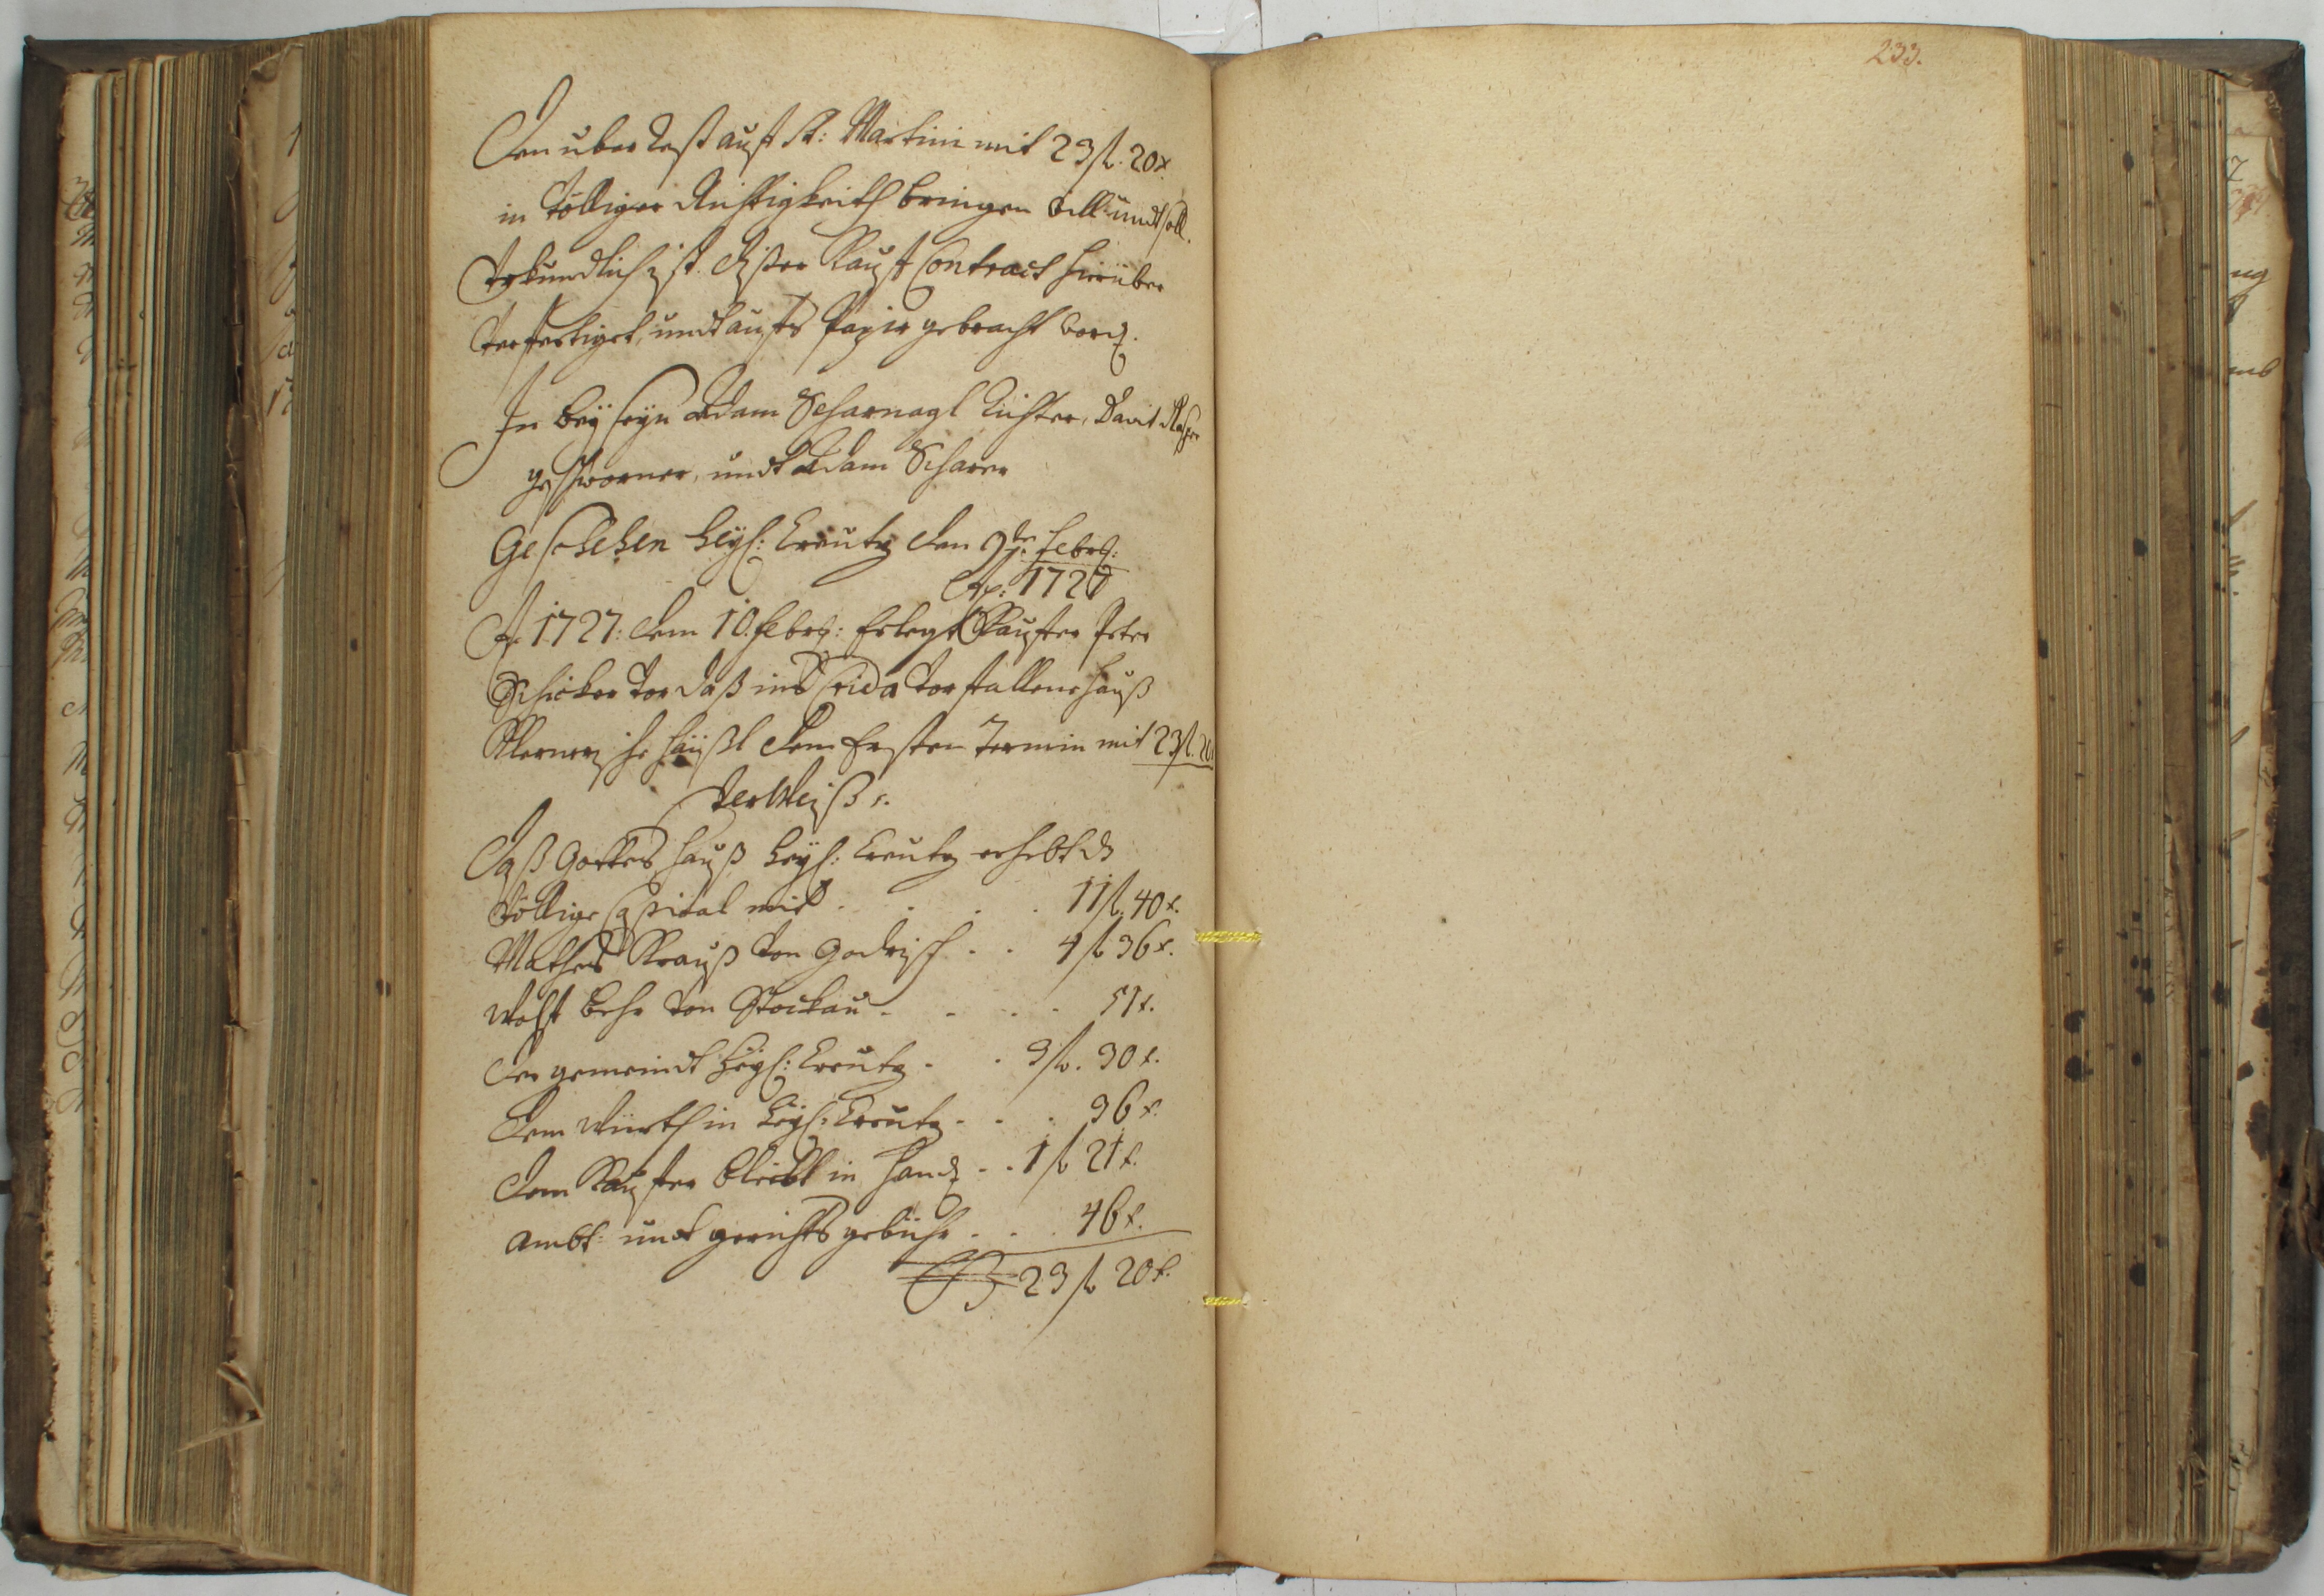 233.
Den uber Rest auff St: Martini mit 23 fl. 20 x.
in völliger Richtigkeith bringen will undt soll.
Vrkundlich ist dißer Kauff Contract hierüber
verfertiget, undt auffs Papir gebracht word.
In bey seyn Adam Scharnagl Richter, Davit
geschworner, undt Adam Scharer
Geschehen heyl: Creutz den 9ten febr:
Ao: 1727
Ao 1727: dem 10. febr: Erlegt Kauffer Peter
Schicker vor daß ins Crida verfallene hauß
häüßl dem Ersten Termin mit 23 fl. 20
verweiß r.
Daß Gottes hauß heyl: Creutz erhebt dz
völlige Capital mit . . . . 11 fl. 40 x.
Mathes Krauß von Godrisch . . 4 fl 36 x.
Wolf Behr von Stockau . . . . 51 x.
Der gemeindt heyl: Creutz . . 3 fl. 30 x.
Dem Würth in heyl: Creutz . . . 36 x.
Dem Kauffer bleibt in Hand . . 1 fl 21 x.
Ambt: undt gerichts gebühr . . . 46 x.
23 fl 20 x.